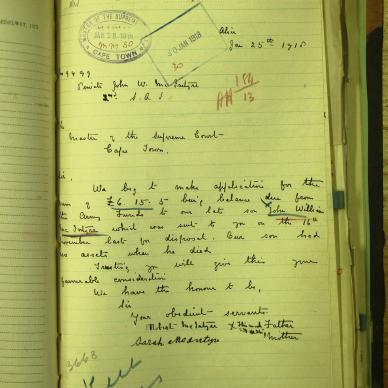 MASTER OF THE SUPREME
JAN 28 1918
CAPE TOWN
30 JAN 1918
Alice
Jan 25th 1918
9499
Private John W. McIntyre
2nd S. A. I.
184
13
Master of the Supreme Court
Cape Town.
Sir,
We beg to make application for the
sum of £6. 15. 5 being balance due from
the Army Funds to our late son John William
Mc Intyre which was sent to you on the 16th
November last for disposal. Our son had
no assets when he died.
Trusting you will give this your
favourable consideration
We have the honour to be,
Sir
Your obedient servants
Robert McIntyre X Father
Sarah McIntyre Mother
3668